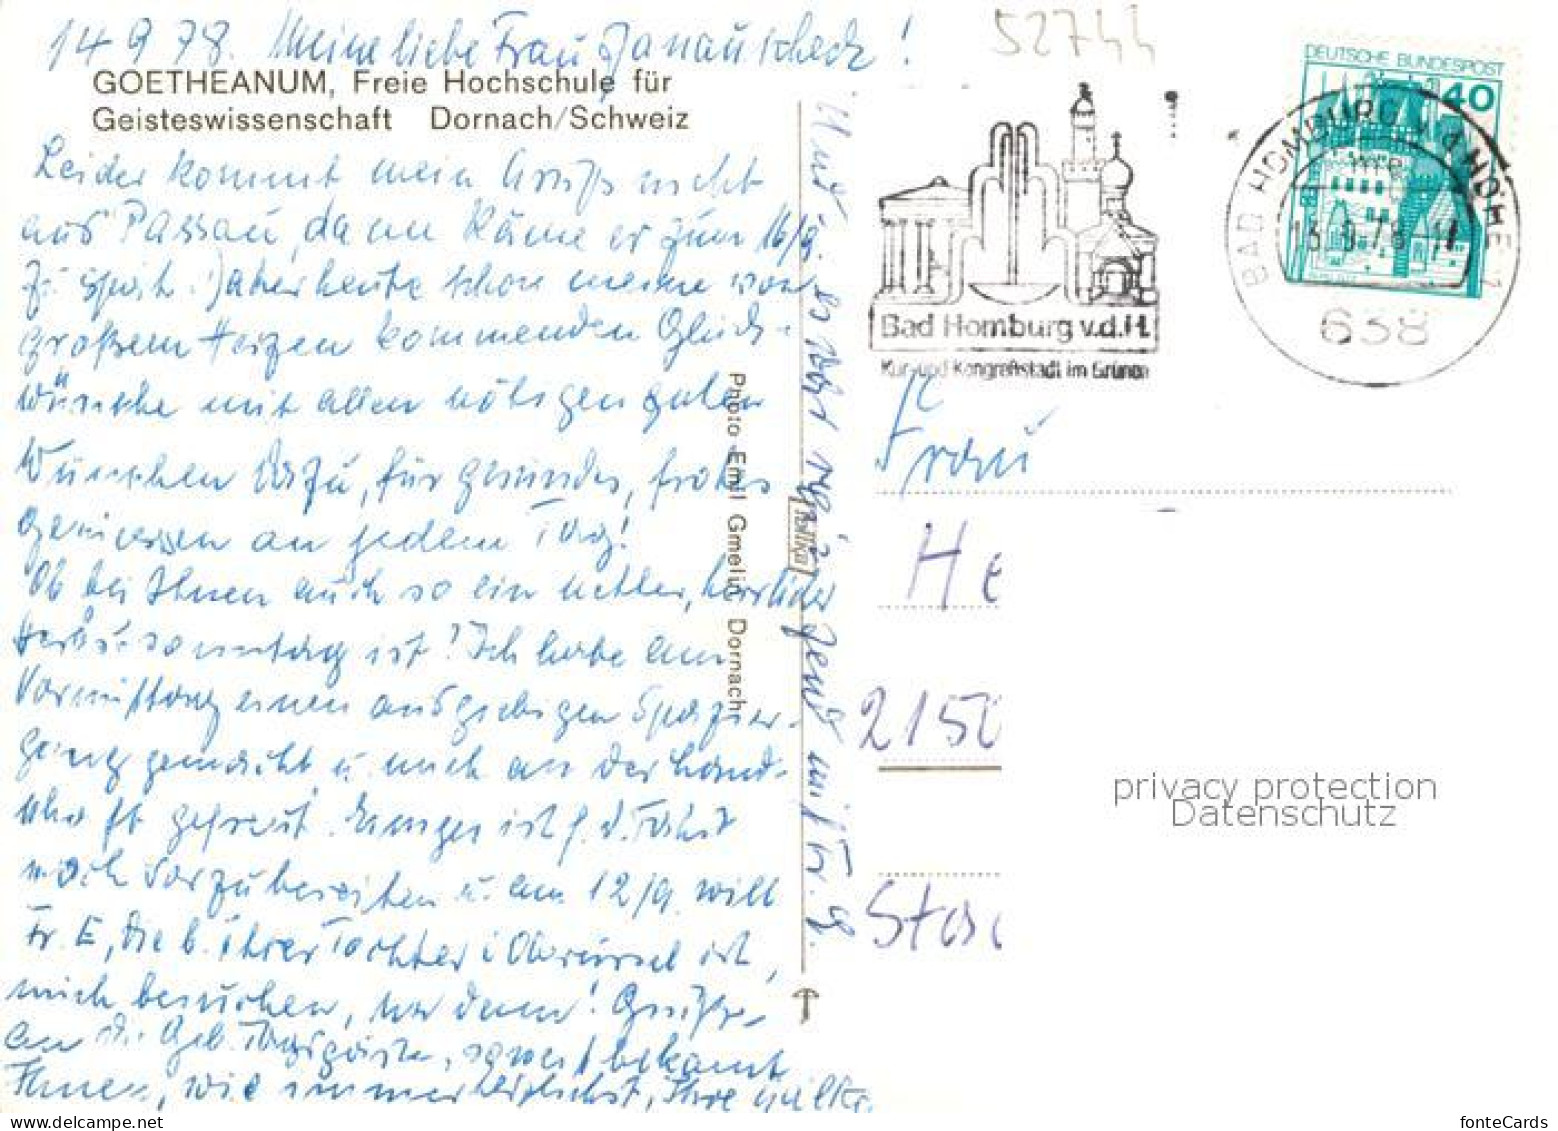 14 9 78. Meine liebe Frau Janauscheck!
52744
GOETHEANUM, Freie Hochschule für
Geisteswissenschaft Dornach/Schweiz
Leider kommt mein Gruß nicht
aus Passau, da er zum 16/9.
zu spät :) aber heute schon meine von
großem Herzen kommenden Glück-
wünsche mit allen nötigen guten
Wünschen dazu, für gesundes, frohes
an jedem Tag!
Ob bei Ihnen auch so ein netter, herrlicher
sonntag ist? Ich habe am
Vormittag einen ausgiebigen Spazier-
gang gemacht u. mich an der Land-
schaft gefreut. Einiges ist f. d. Fahrt
noch vorzubereiten u. am 12/9. will
Fr. E, die b. ihrer Tochter i Oberursel ist,
mich besuchen, vor dem! Grüße
an die Geb. Tagsgäste, soweit bekannt
Ihnen, wie immer herzlichst, Ihre
Photo Emil Gmelin Dornach
DEUTSCHE BUNDESPOST
40
BAD HOMBURG v d HÖHE 1
13.9.78-11
638
Bad Homburg v.d.H.
Kur- und Kongreßstadt im Grünen
Frau
He
2150
privacy protection
Datenschutz
fonteCards